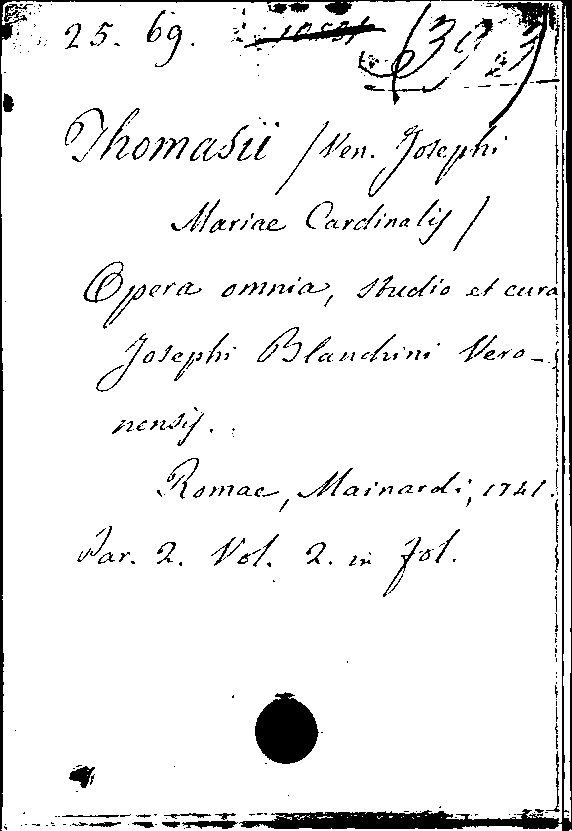 25. 69.
Thomasii / Ven. Josephi
Mariae Cardinalis /
Opera omnia, studio et cura
Josephi Blanchini Vero-
nensis.
Romae, Mainardi, 1741.
Par. 2. Vol. 2. in fol.